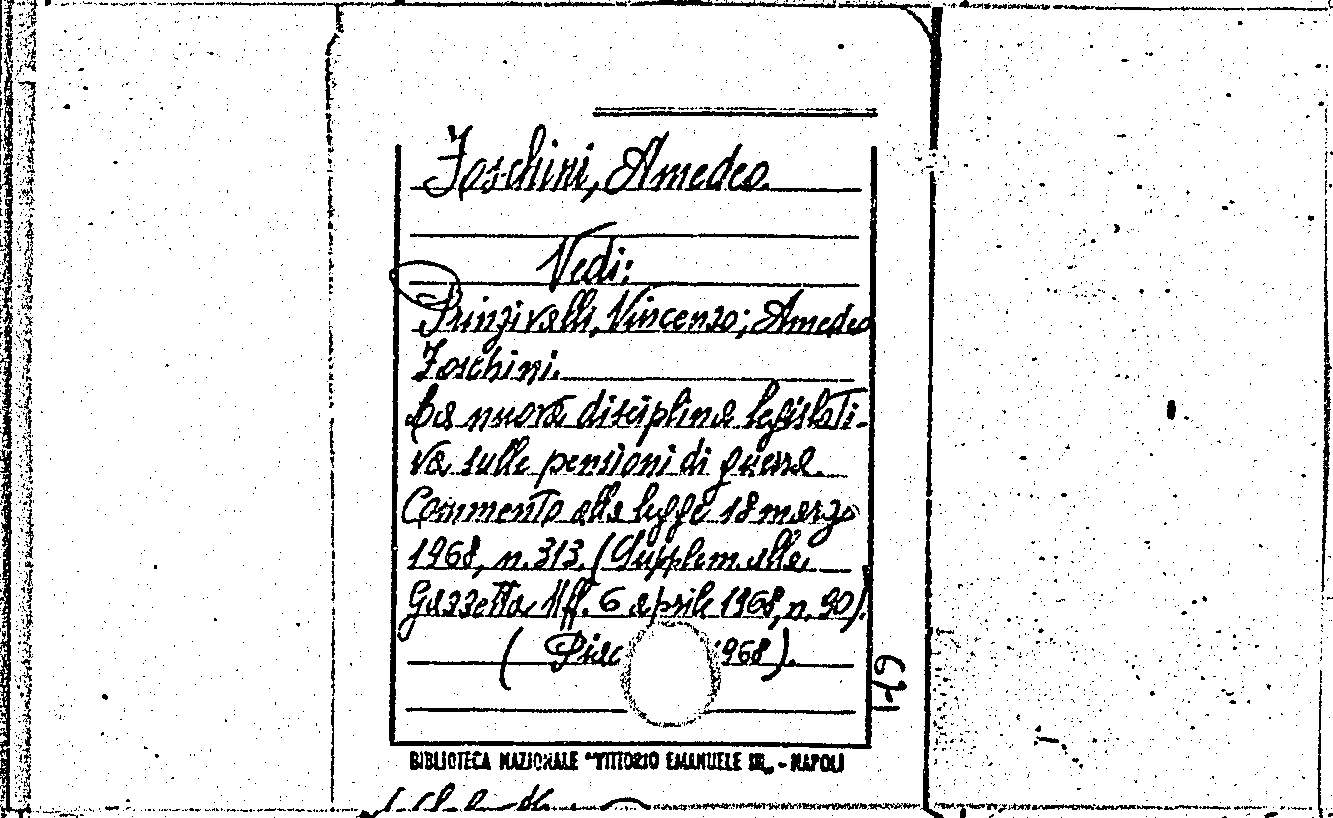 Foschini, Amedeo.
Vedi:
Prinzivalli, Vincenzo; Amedeo
Foschini.
La nuova disciplina legislati-
va sulle pensioni di guerra.
Commento alla legge 18 marzo
1968, n. 313. (Supplem. alla
Gazzetta Uff. 6 aprile 1968, n. 90).
( 1968).
149
BIBLIOTECA NAZIONALE "VITTORIO EMANUELE III„ - NAPOLI